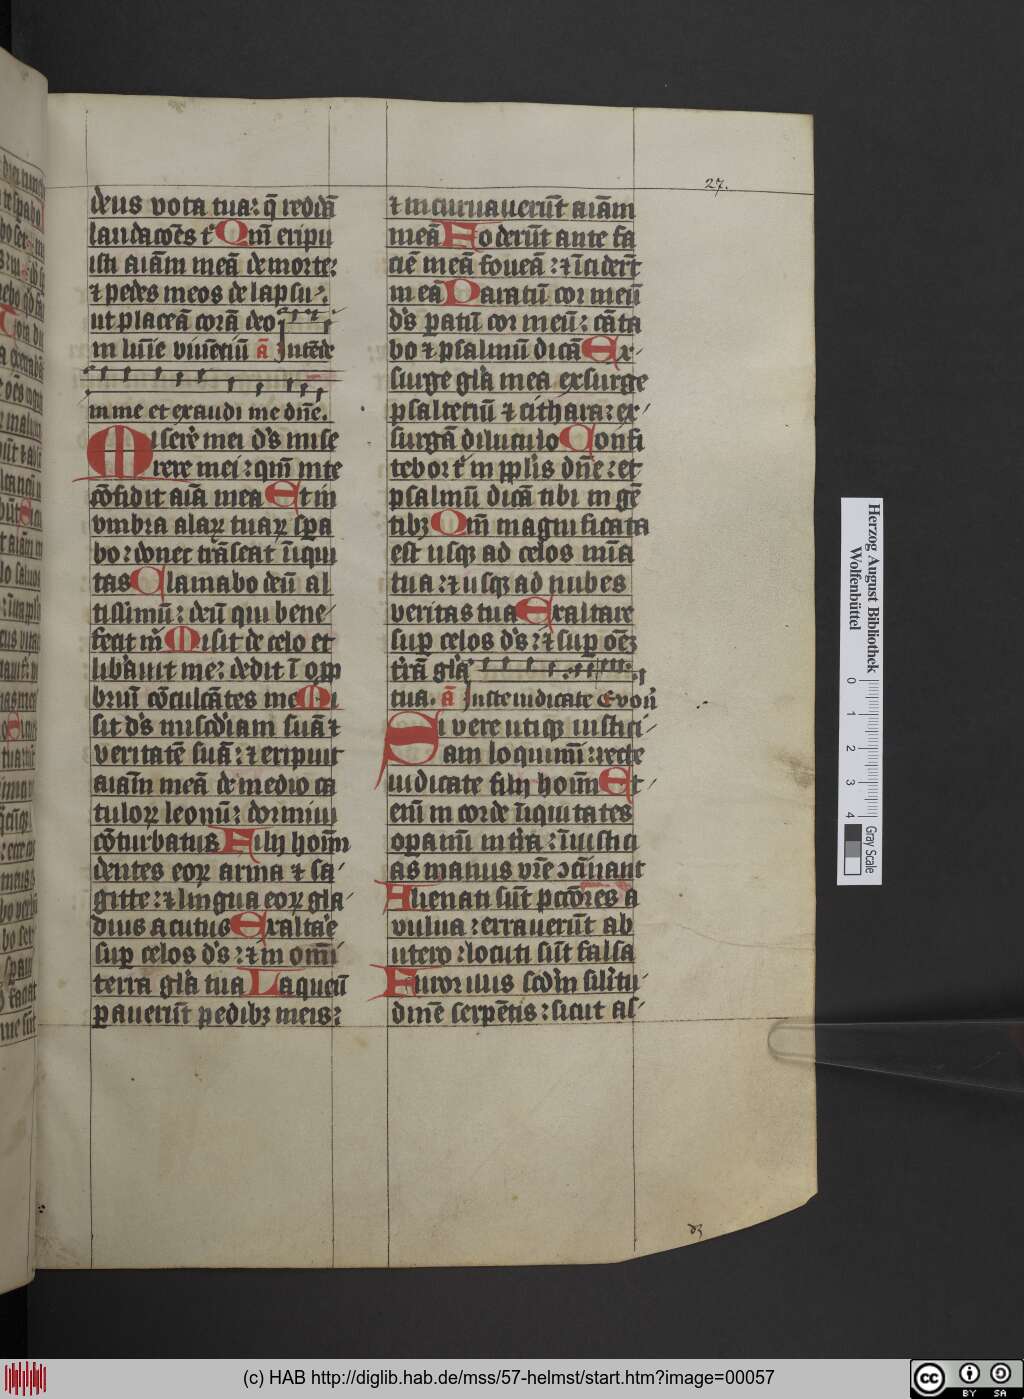 27.
deus vota tua: q̄ reddā
laudac̄oēs t̄ Qm̄ eripu
isti aīam meā de morte:
⁊ pedes meos de lapsu:
ut placeā corā deo
in lum̄e viuētiū ā Intēde
in me et exaudi me dn̄e.
Miser̄e mei d's mise
rere mei: qm̄ in te
cōfidit aīa mea Et in
vmbra alaꝝ tuaꝝ spa
bo: donec trāseat īiqui
tas Clamabo deū al
tissimū: deū qui bene
fecit m̄ Misit de celo et
lib̄auit me: dedit ī opp
briū cōculcātes me Mi
sit d's mīscd̄iam suā ⁊
veritatē suā: ⁊ eripuit
aīam meā de medio ca
tuloꝝ leonū: dormiui
cōturbatus Filij hoīm
dentes eoꝝ arma ⁊ sa
gitte: ⁊ lingua eoꝝ gla
dius acutus Exaltar̄e
suꝑ celos d's: ⁊ in omī
terra gl̄a tua Laqueū
ꝑauerūt pedibꝫ meis:
⁊ incuruauerūt aīam
meā Foderūt ante fa
ciē meā foueā: ⁊ īciderūt
in eā Paratū cor meū
d's ꝑatū cor meū: cāta
bo ⁊ psalmū dicā Ex
surge gl̄a mea exsurge
psalteriū ⁊ cithara: ex
surgā diluculo Confi
tebor t̄ in ppl̄is dn̄e: et
psalmū dicā tibi in gē
tibꝫ Qm̄ magnificata
est usqꝫ ad celos mīa
tua: ⁊ usqꝫ ad nubes
veritas tua Exaltare
suꝑ celos d's: ⁊ suꝑ oēꝫ
trā gl̄a
tua. ā Juste iudicate Euoū
Si vere utiqꝫ iustici
am loquimī: recte
iudicate filij hoīm Et
enī in corde īiquitates
oꝑamī in tr̄a: īiustici
as manus vr̄e ↄcīnant
Alienati sūt pctōres a
vulua: errauerūt ab
utero: locuti sūt falsa
Furor illis scd̄m sil̄itu
dinē serpētis: sicut as
d3
Herzog August Bibliothek
Wolfenbüttel
0 1 2 3 4 Gray Scale
(c) HAB http://diglib.hab.de/mss/57-helmst/start.htm?image=00057
cc BY SA